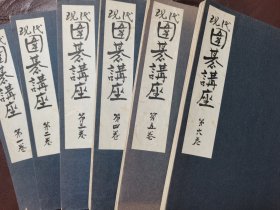 現代
囲碁講座
第一巻
現代
囲碁講座
第二巻
現代
囲碁講座
第三巻
現代
囲碁講座
第四巻
現代
囲碁講座
第五巻
現代
囲碁講座
第六巻